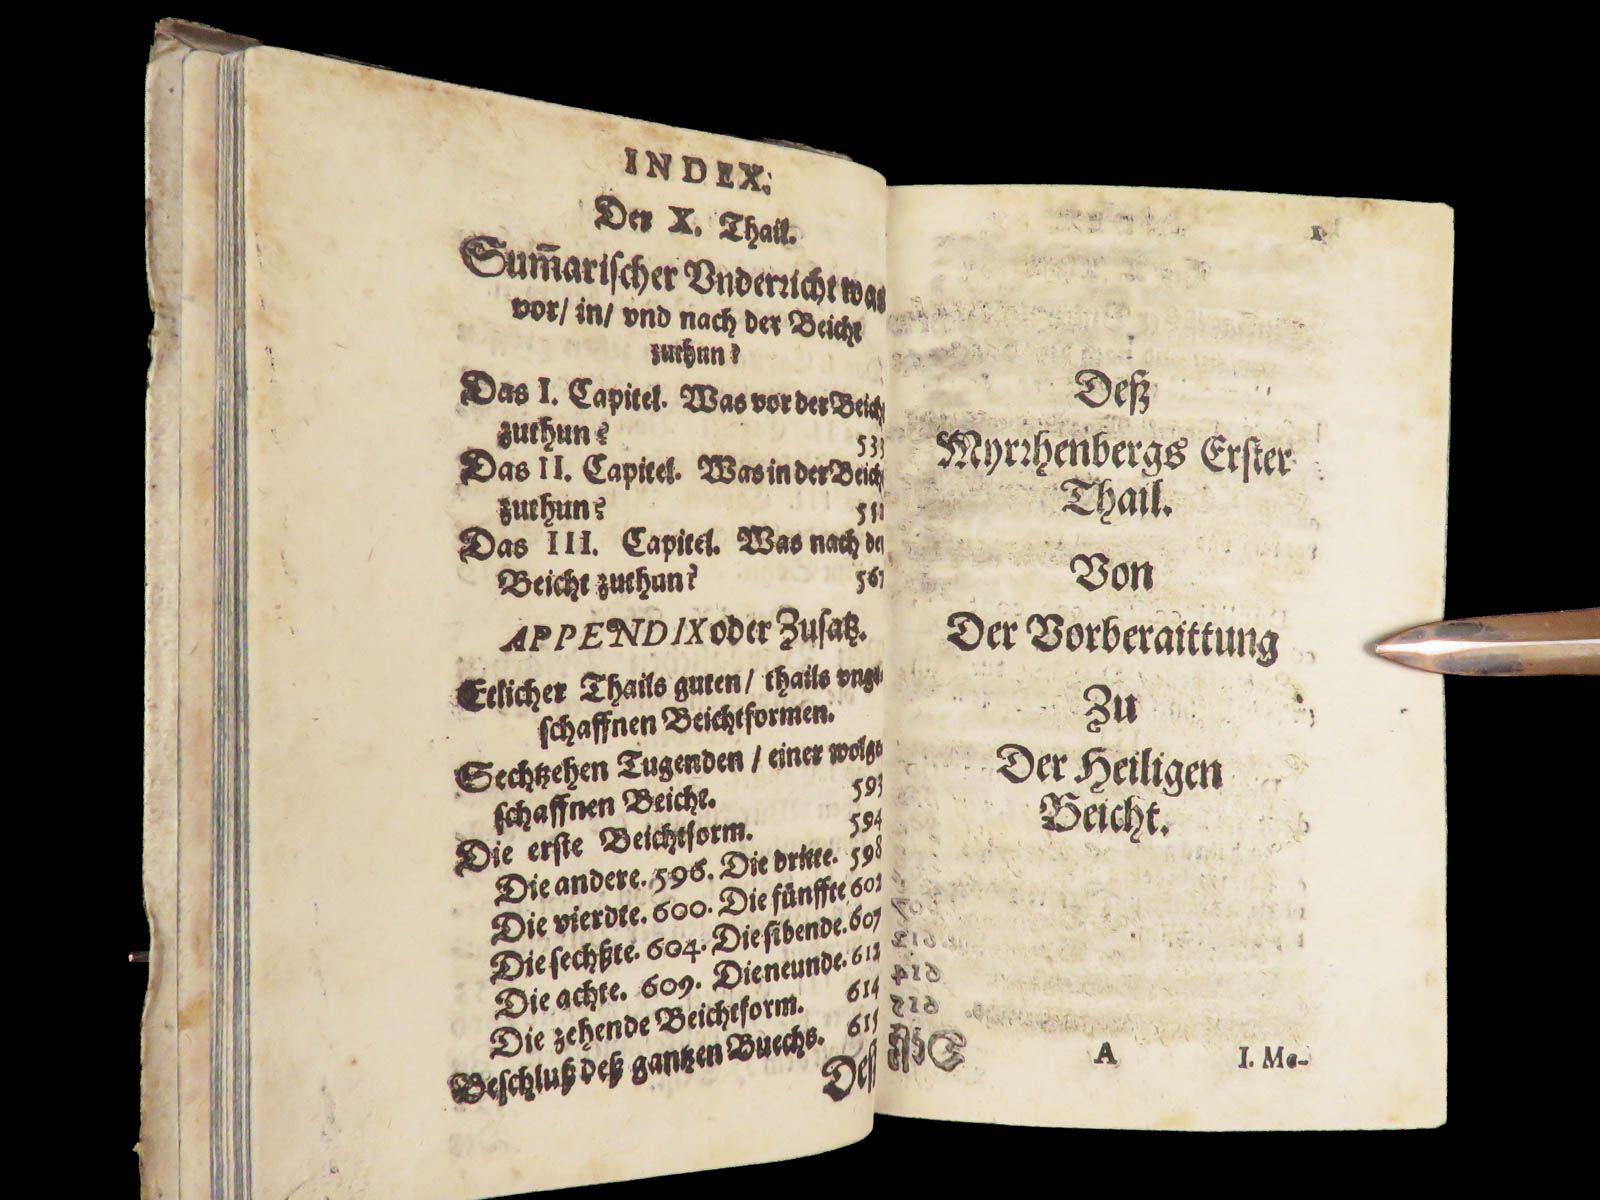 INDEX.
Der X. Thail.
Sum̄arischer Vnderricht was
vor/ in/ vnd nach der Beicht
zuthun?
Das I. Capitel. Was vor der Beicht
zuthun? 533
Das II. Capitel. Was in der Beicht
zuthun?
Das III. Capitel. Was nach der
Beicht zuthun? 567
APPENDIX oder Zusatz.
Etlicher Thails guten/ thails vnge-
schaffnen Beichtformen.
Sechtzehen Tugenden / einer wolge-
schaffnen Beicht. 593
Die erste Beichtform. 594
Die andere. 596. Die dritte. 598
Die vierdte. 600. Die fünffte 602
Die sechßte. 604. Die sibende. 607
Die achte. 609. Die neunde. 612
Die zehende Beichtform. 614
Beschluß deß gantzen Buechs. 615
Deß
1
Deß
Myrrhenbergs Erster
Thail.
Von
Der Vorberaittung
Zu
Der Heiligen
Beicht.
A I. Me-